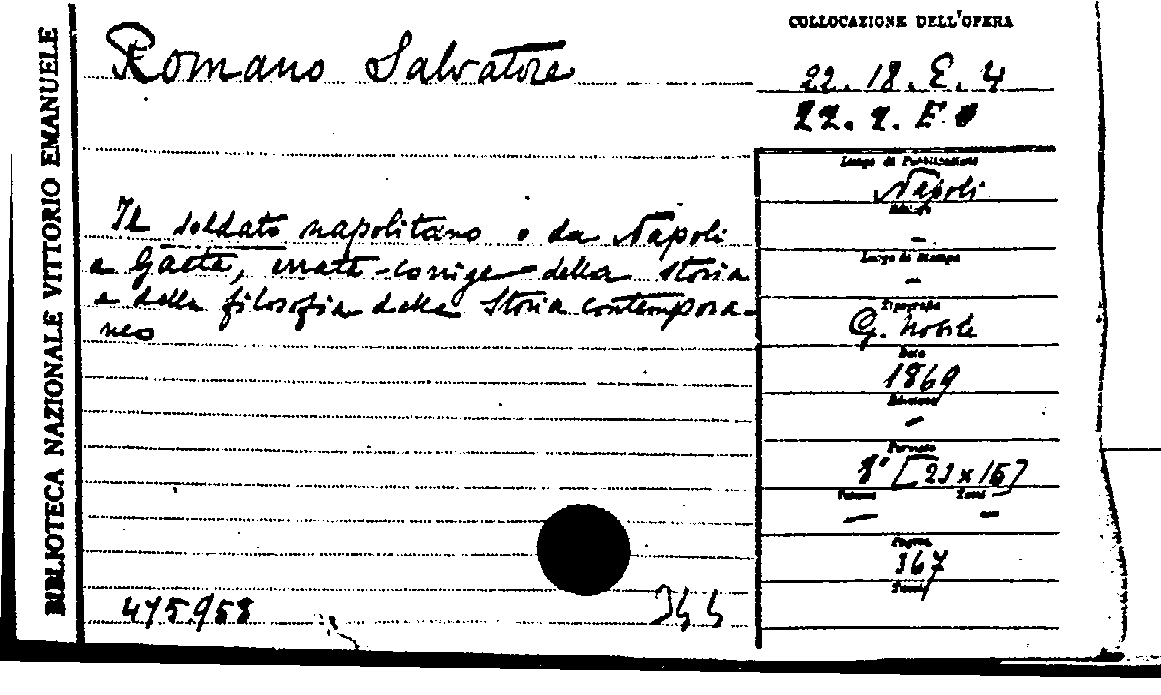 BIBLIOTECA NAZIONALE VITTORIO EMANUELE
Romano Salvatore
Il soldato napolitano o da Napoli
a Gaeta, errata-corrige della storia
e della filosofia della Storia contempora-
neo
475.958
COLLOCAZIONE DELL'OPERA
22. 18. E. 4
22. 2. E
Luogo di Pubblicazione
Napoli
–
Luogo di Stampa
–
Tipografia
G. Nobile
Data
1869
Edizione
–
Formato
8° [23 x 15]
Volume Tomi
– –
Pagine
367
Tavole